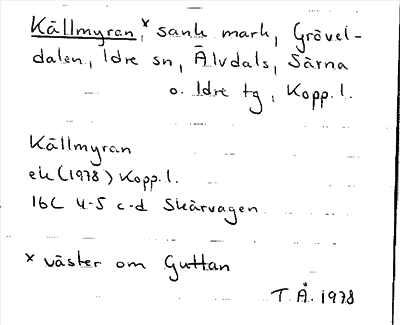 Källmyran,ˣ sank mark, Grövel-
dalen, Idre sn, Älvdals, Särna
o. Idre tg, Kopp.l.
Källmyran
ek (1978) Kopp.l.
16C 4-5 c-d Skärvagen
x väster om Guttan
T.Å. 1978